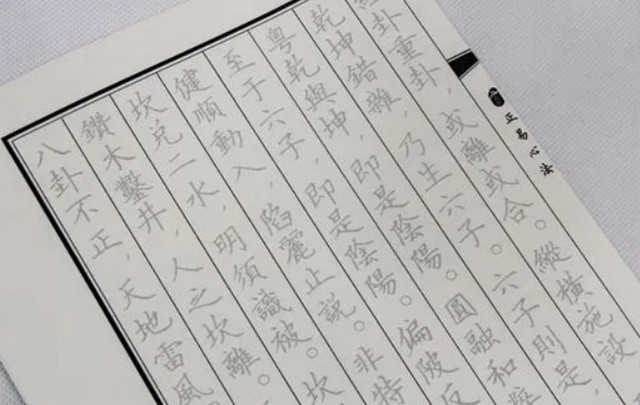 正易心法
卦重卦，或離或合。縱橫施設，
乾坤錯雜，乃生六子。六子則是，
粵乾與坤，即是陰陽。圓融和
至于六子，即是陰陽。偏陂反
健順動入，陷麗止説。非特
坎兑二水，明須識破。坎
鑽木鑿井，人之坎離。
八卦不正，天地雷風。